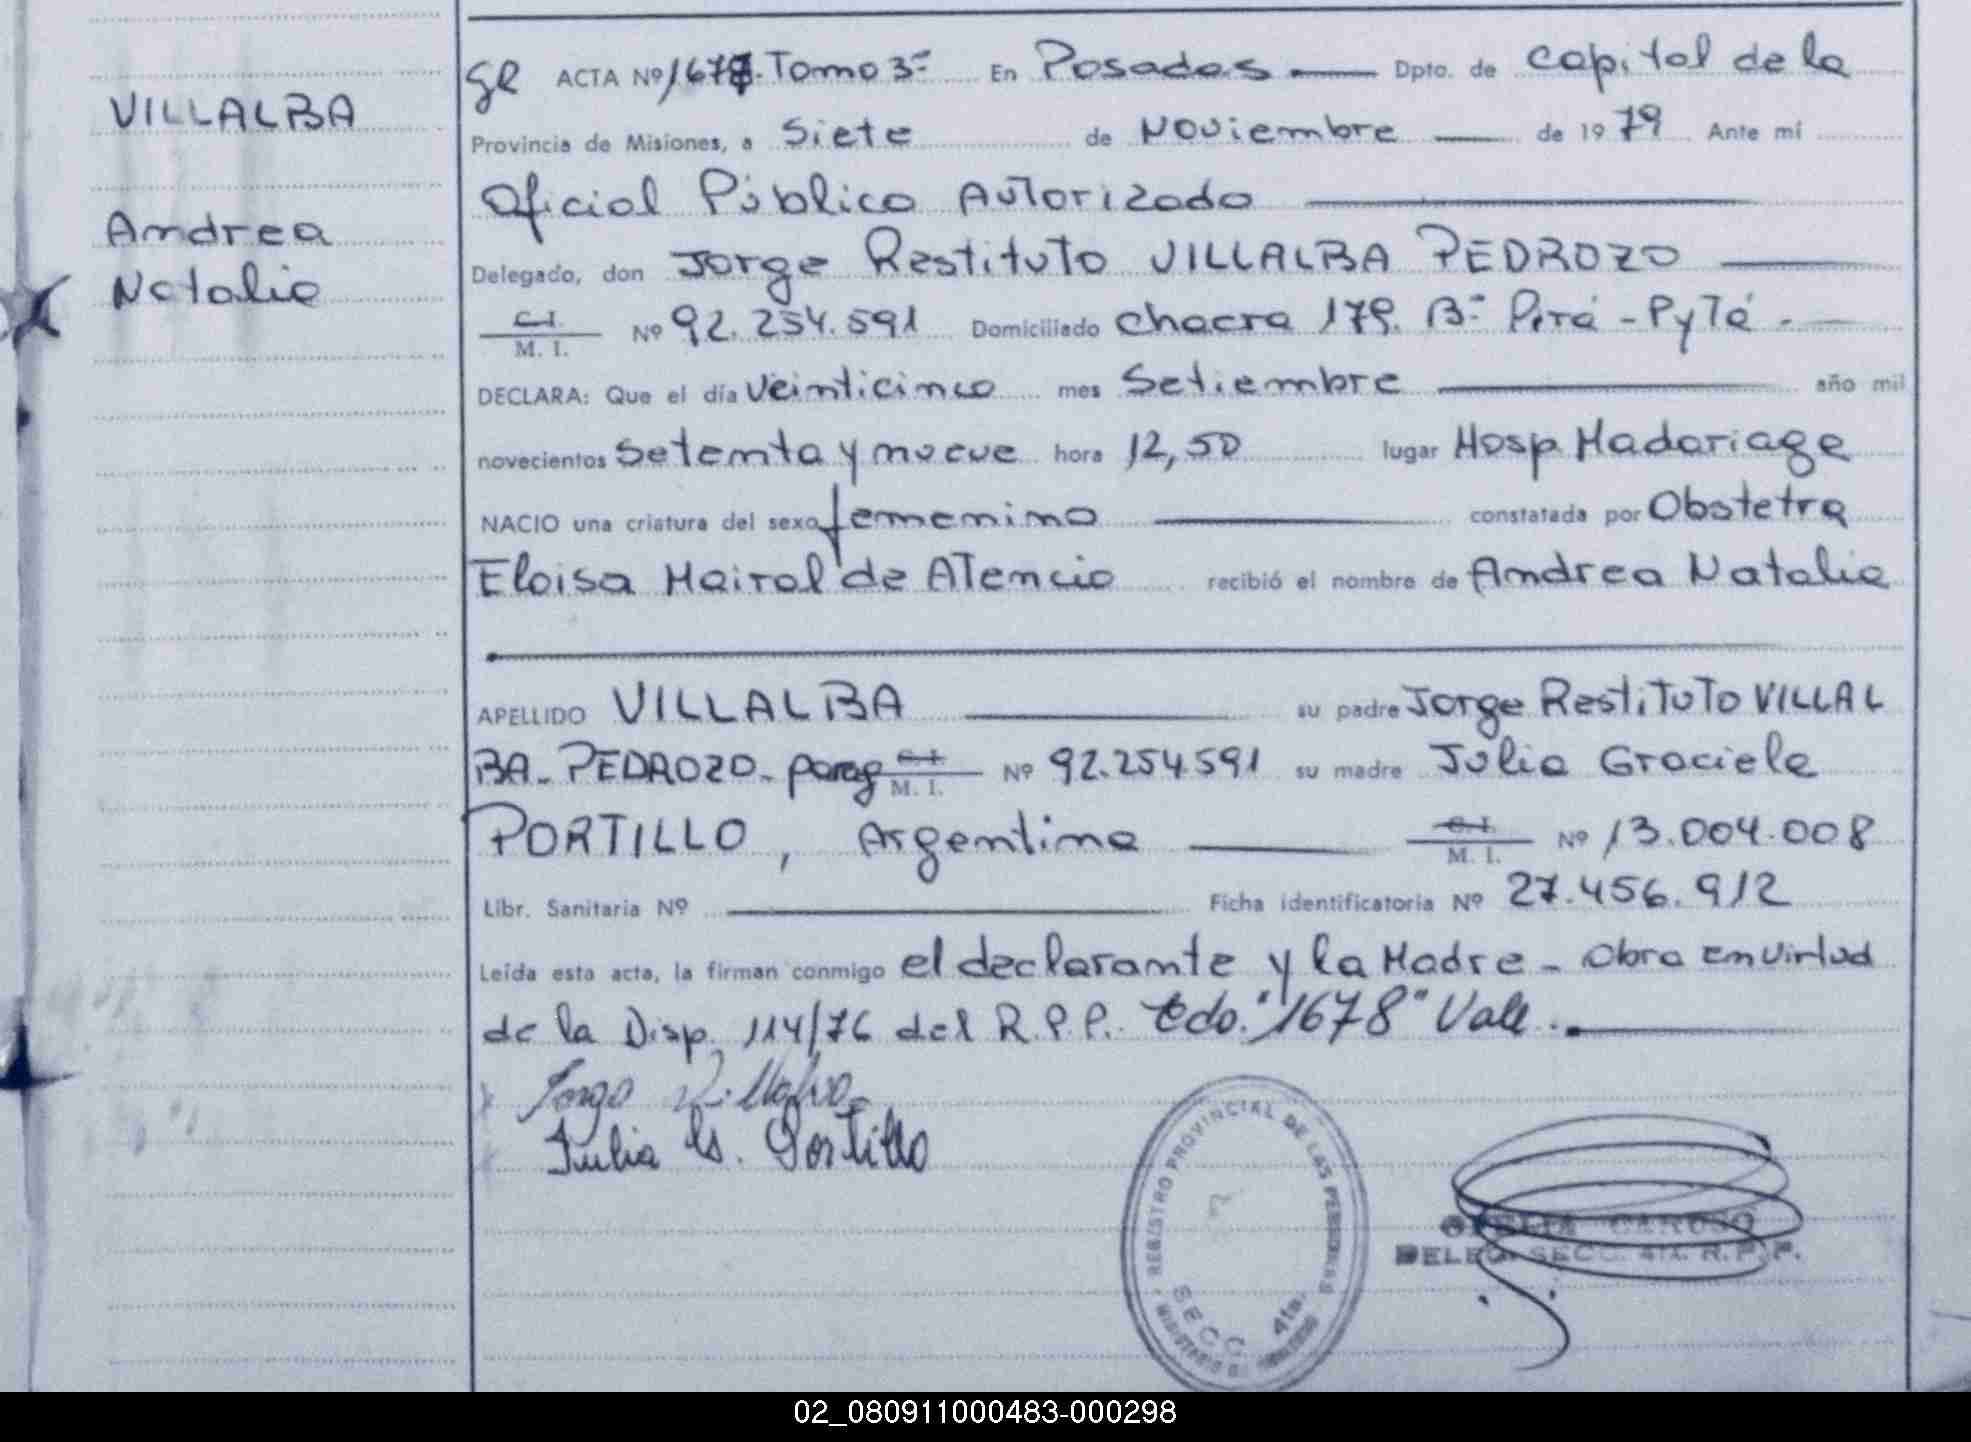 VILLALBA
Andrea
Natalia
ACTA Nº 1678. Tomo 3º En Posadas Dpto. de Capital de la
Provincia de Misiones, a Siete de Noviembre de 1979 Ante mí
Oficial Público Autorizado
Delegado, don Jorge Restituto VILLALBA PEDROZO
C.I.
M. I. Nº 92.254.591 Domiciliado Chacra 179. Bº Pirá-Pytá.
DECLARA: Que el día Veinticinco mes Setiembre año mil
novecientos setenta y nueve hora 12,50 lugar Hosp. Madariaga
NACIO una criatura del sexo femenino constatada por Obstetra
Eloisa Mairal de Atencio recibió el nombre de Andrea Natalia
APELLIDO VILLALBA su padre Jorge Restituto VILLAL
BA-PEDROZO- parag C.I. M. I. Nº 92.254.591 su madre Julia Graciela
PORTILLO, Argentina C.I. M. I. Nº 13.004.008
Libr. Sanitaria Nº Ficha identificatoria Nº 27.456.912
Leída esta acta, la firman conmigo el declarante y la Madre- Obra en virtud
de la Disp. 114/76 del R.P.P. Edo. "1678" Vale.
Jorge Villalba
Julia G. Portillo
REGISTRO PROVINCIAL DE LAS PERSONAS
SECC. 4ta.
MINISTERIO DE GOBIERNO
OFELIA CARUSO
DELEG. SECC. 4ta. R. P. P.
02_080911000483-000298